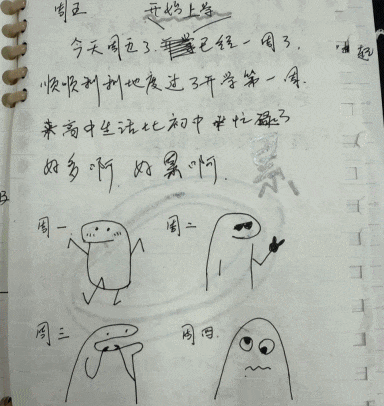 周五 开始上学
今天周五了,已经一周了
顺顺利利地度过了开学第一周.
来高中生活比初中 忙碌了
好多啊,好累啊.
周一 周二
周三 周四.